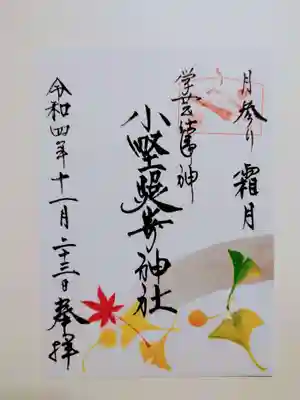 月参り 霜月
学芸 神
小野照崎神社
令和四年十一月二十三日奉拝